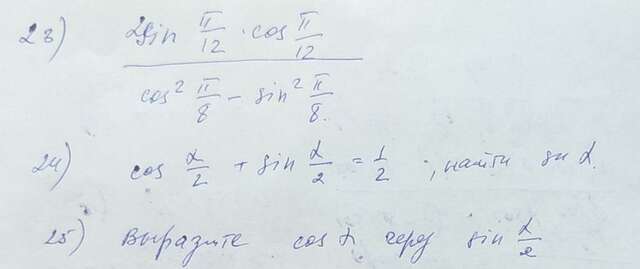 23) 2sin π/12 · cos π/12
cos² π/8 - sin² π/8.
24) cos α/2 + sin α/2 = 1/2 ; найти sin α.
25) Выразите cos α через sin α/2